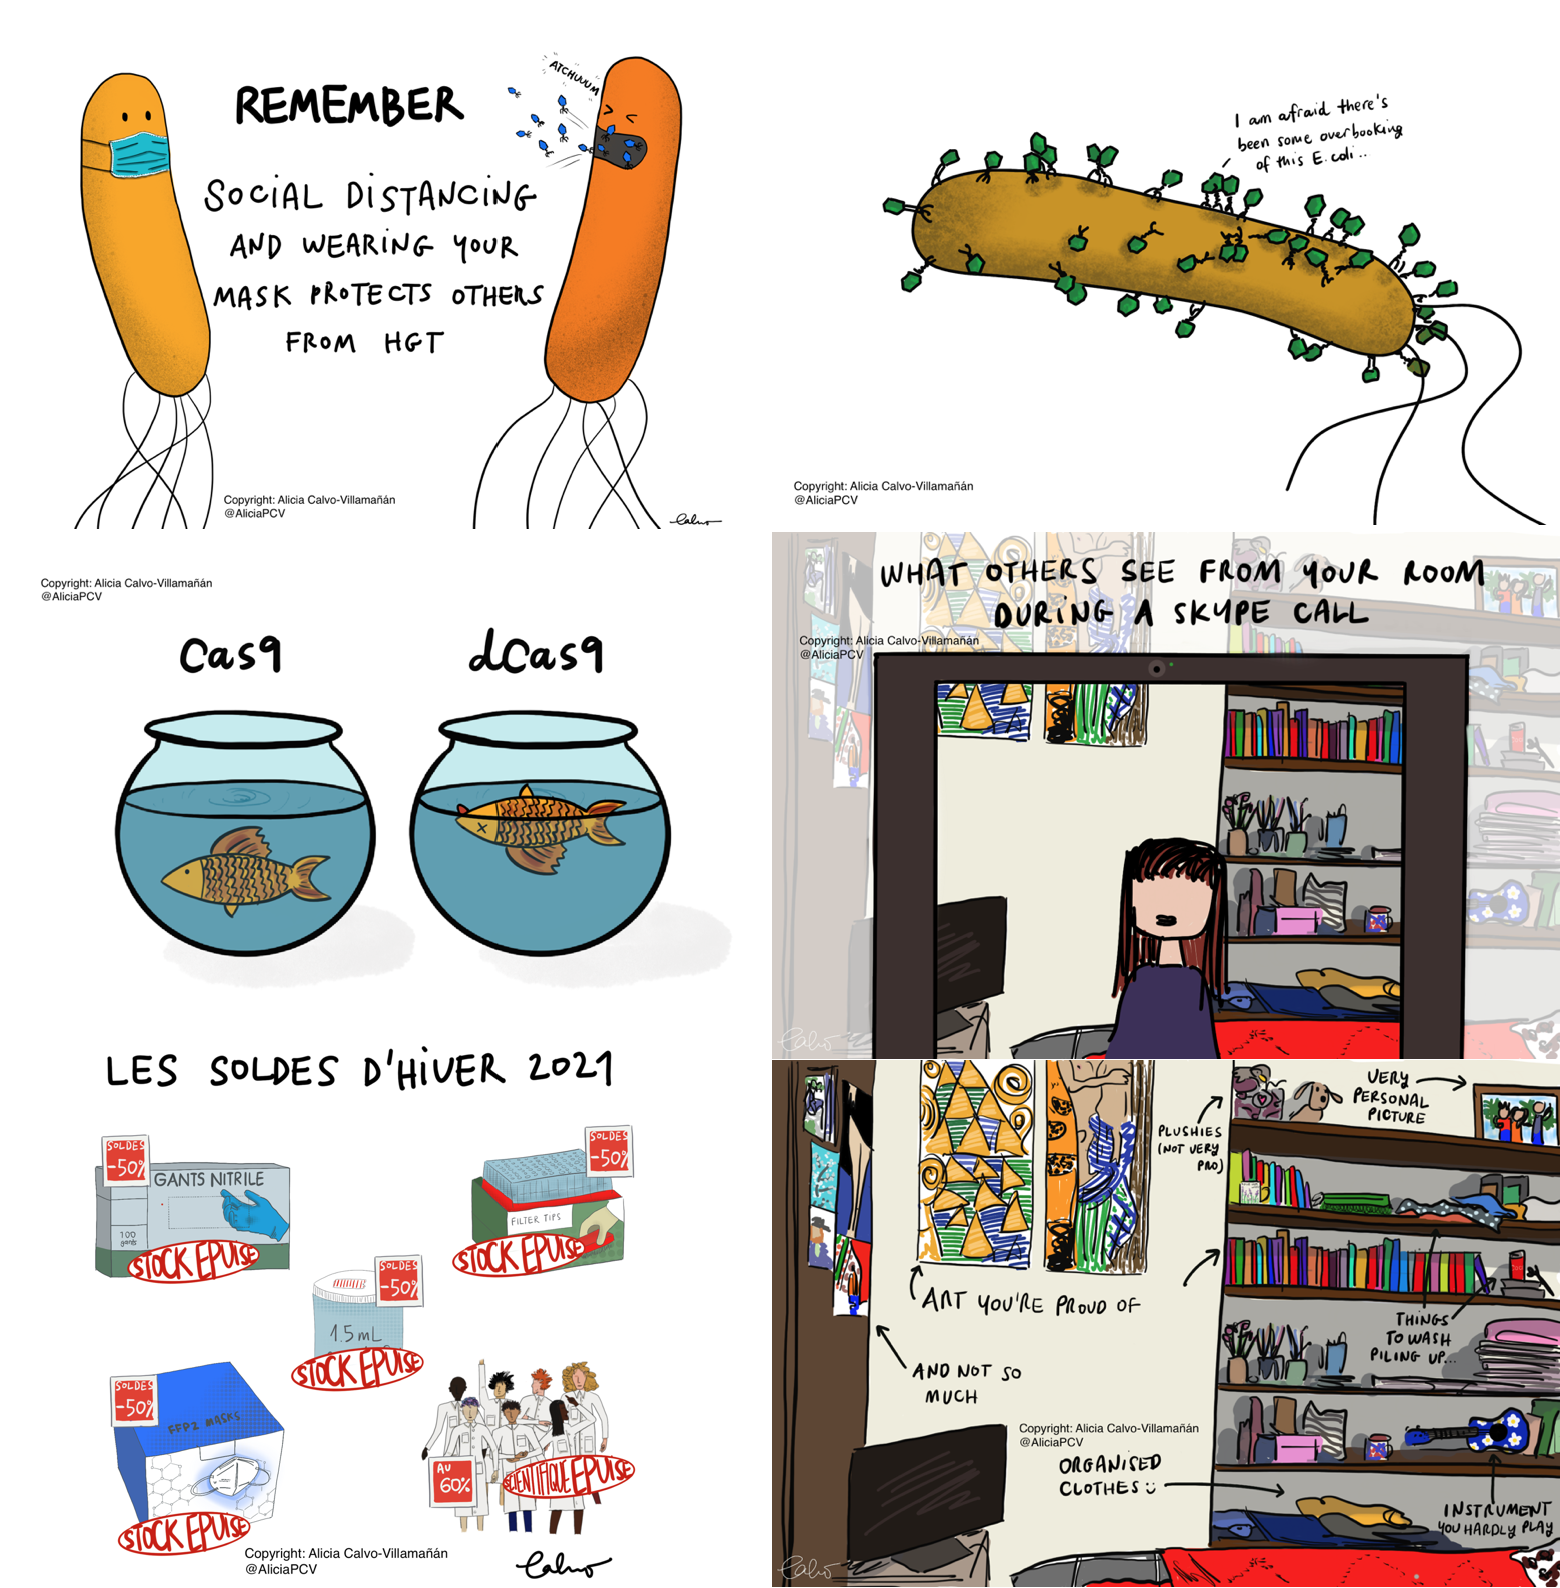 ATCHUUUM
REMEMBER
SOCIAL DISTANCING
AND WEARING YOUR
MASK PROTECTS OTHERS
FROM HGT
Copyright: Alicia Calvo-Villamañán
@AliciaPCV
Calvo
I am afraid there's
been some overbooking
of this E. coli..
Copyright: Alicia Calvo-Villamañán
@AliciaPCV
Copyright: Alicia Calvo-Villamañán
@AliciaPCV
Cas9
dCas9
WHAT OTHERS SEE FROM YOUR ROOM
DURING A SKYPE CALL
Copyright: Alicia Calvo-Villamañán
@AliciaPCV
Calvo
LES SOLDES D'HIVER 2021
SOLDES
-50%
GANTS NITRILE
100
gants
STOCK EPUISE
SOLDES
-50%
FILTER TIPS
STOCK EPUISE
SOLDES
-50%
1.5mL
STOCK EPUISE
SOLDES
-50%
FFP2 MASKS
STOCK EPUISE
AU
60%
SCIENTIFIQUE EPUISE
Copyright: Alicia Calvo-Villamañán
@AliciaPCV
Calvo
VERY
PERSONAL
PICTURE
PLUSHIES
(NOT VERY
PRO)
ART YOU'RE PROUD OF
AND NOT SO
MUCH
THINGS
TO WASH
PILING UP...
Copyright: Alicia Calvo-Villamañán
@AliciaPCV
ORGANISED
CLOTHES
INSTRUMENT
YOU HARDLY PLAY
Calvo